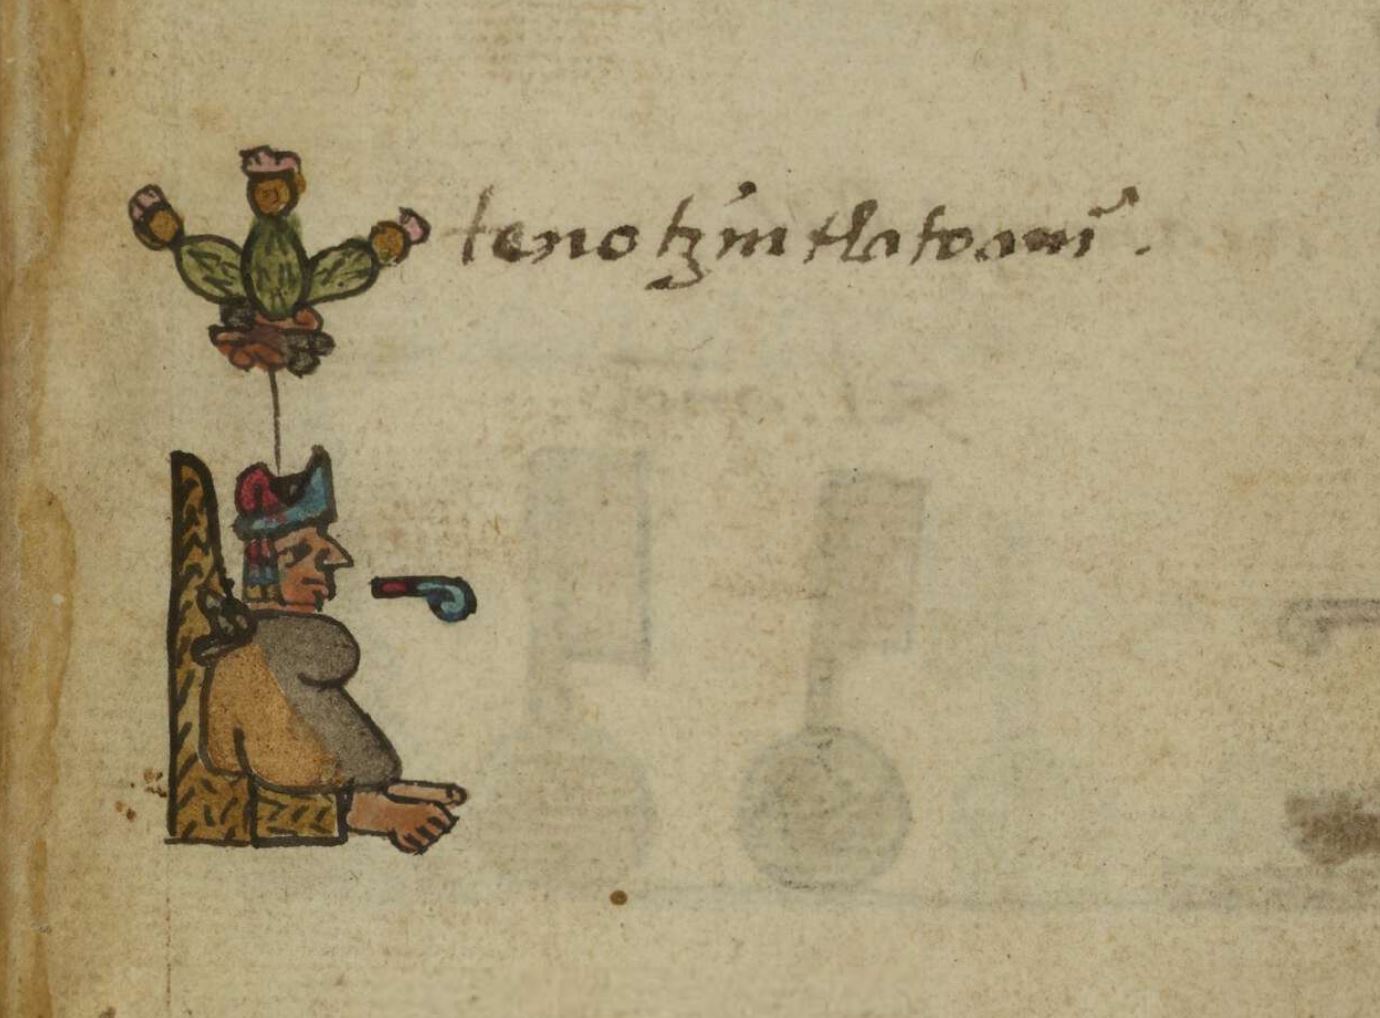 tenotzin tlatoani.